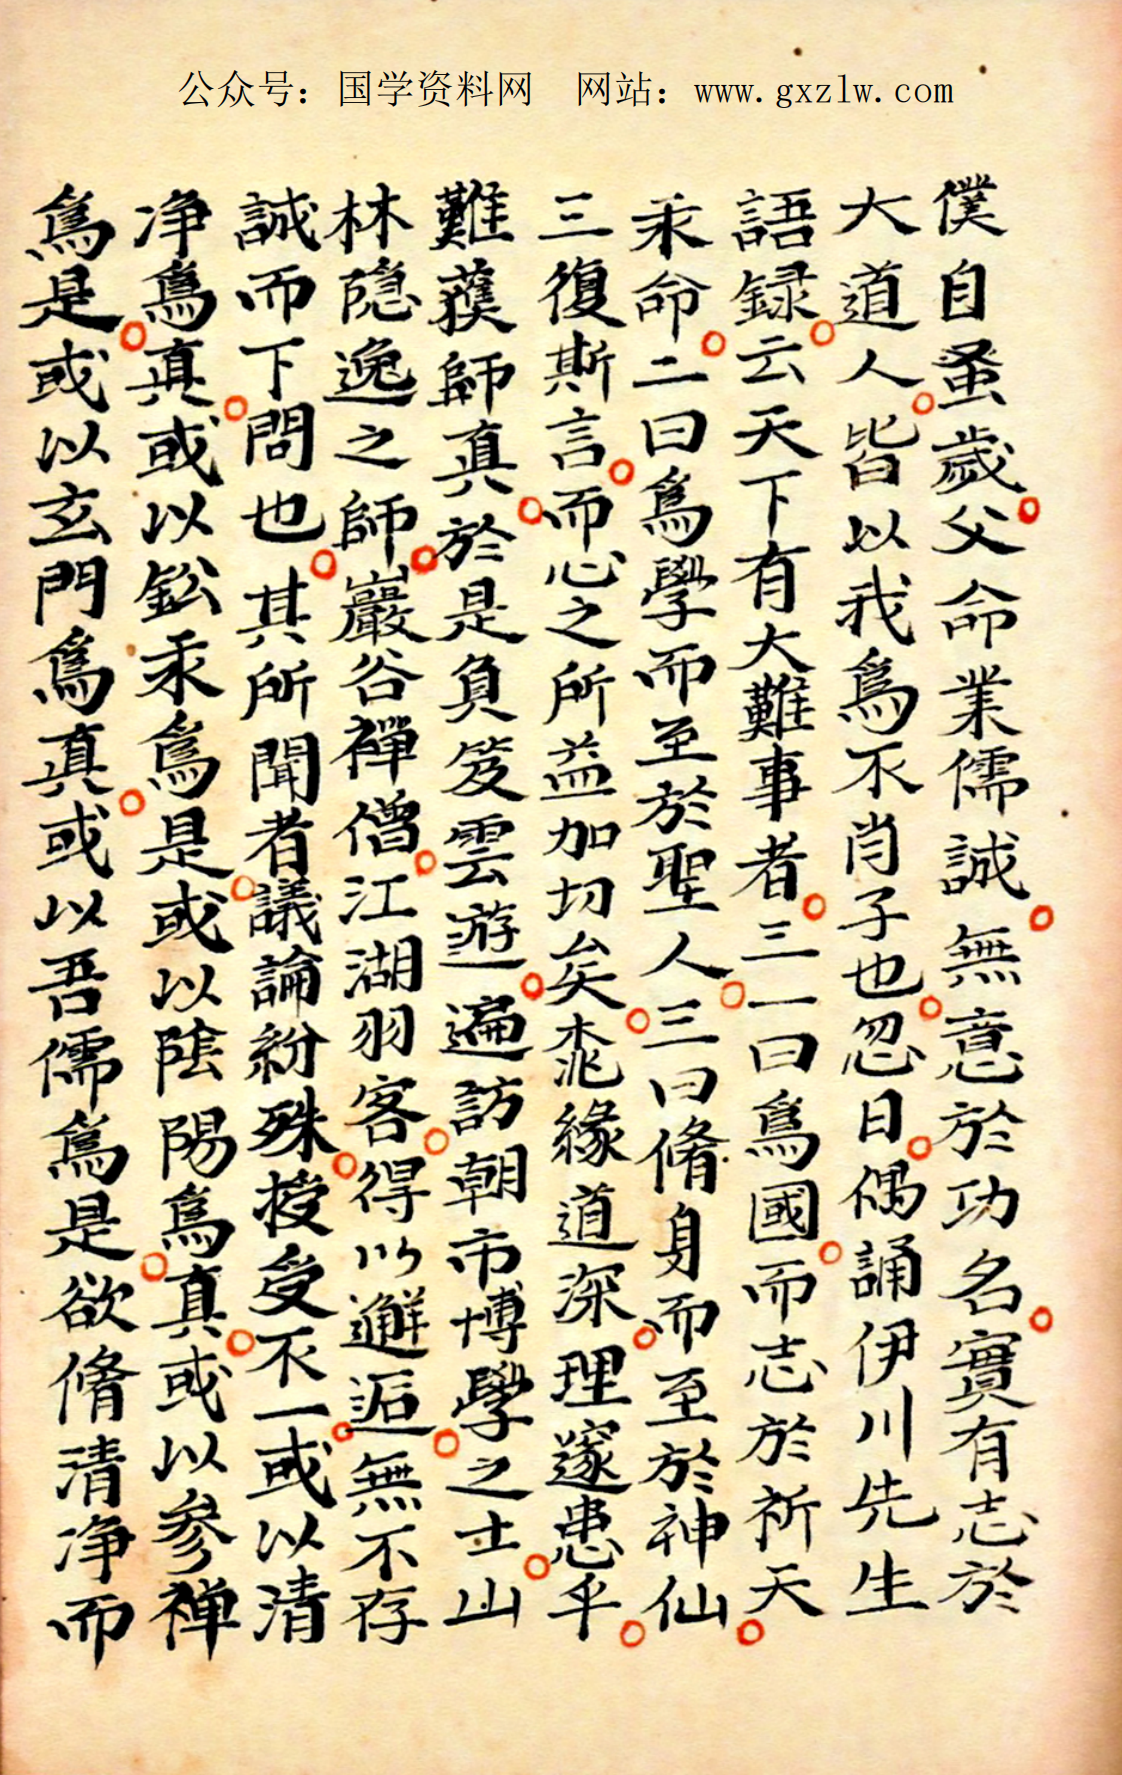 公众号：国学资料网　网站：www.gxzlw.com
僕自蚤歲父命業儒誠無意於功名實有志於
大道人皆以我爲不肖子也忽日偶誦伊川先生
語録云天下有大難事者三一曰爲國而志於祈天
永命二曰爲學而至於聖人三曰脩身而至於神仙
三復斯言而心之所益加切矣柰緣道深理邃患乎
難獲師真於是負笈雲遊遍訪朝市博學之士山
林隐逸之師巖谷禪僧江湖羽客得以邂逅無不存
誠而下問也其所聞者議論紛殊授受不一或以清
净爲真或以鈆汞爲是或以陰陽爲真或以参禅
爲是或以玄門爲真或以吾儒爲是欲脩清净而